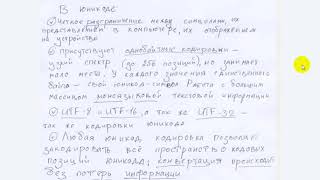 В юникоде
• Чёткое разграничение между символами, их
представлением в компьютере, их отображением
на устройстве
• присутствуют однобайтные кодировки -
узкий спектр (до 256 позиций), но занимает
мало места. У каждого значения единственного
байта - свой юникод-символ Работа с большим
массивом моноязыковой текстовой информации
• UTF-8 и UTF-16, а так же UTF-32 -
так же кодировки юникода
• Любая юникод кодировка позволяет
закодировать всё пространство кодовых
позиций юникода; конвертация происходит
без потерь информации